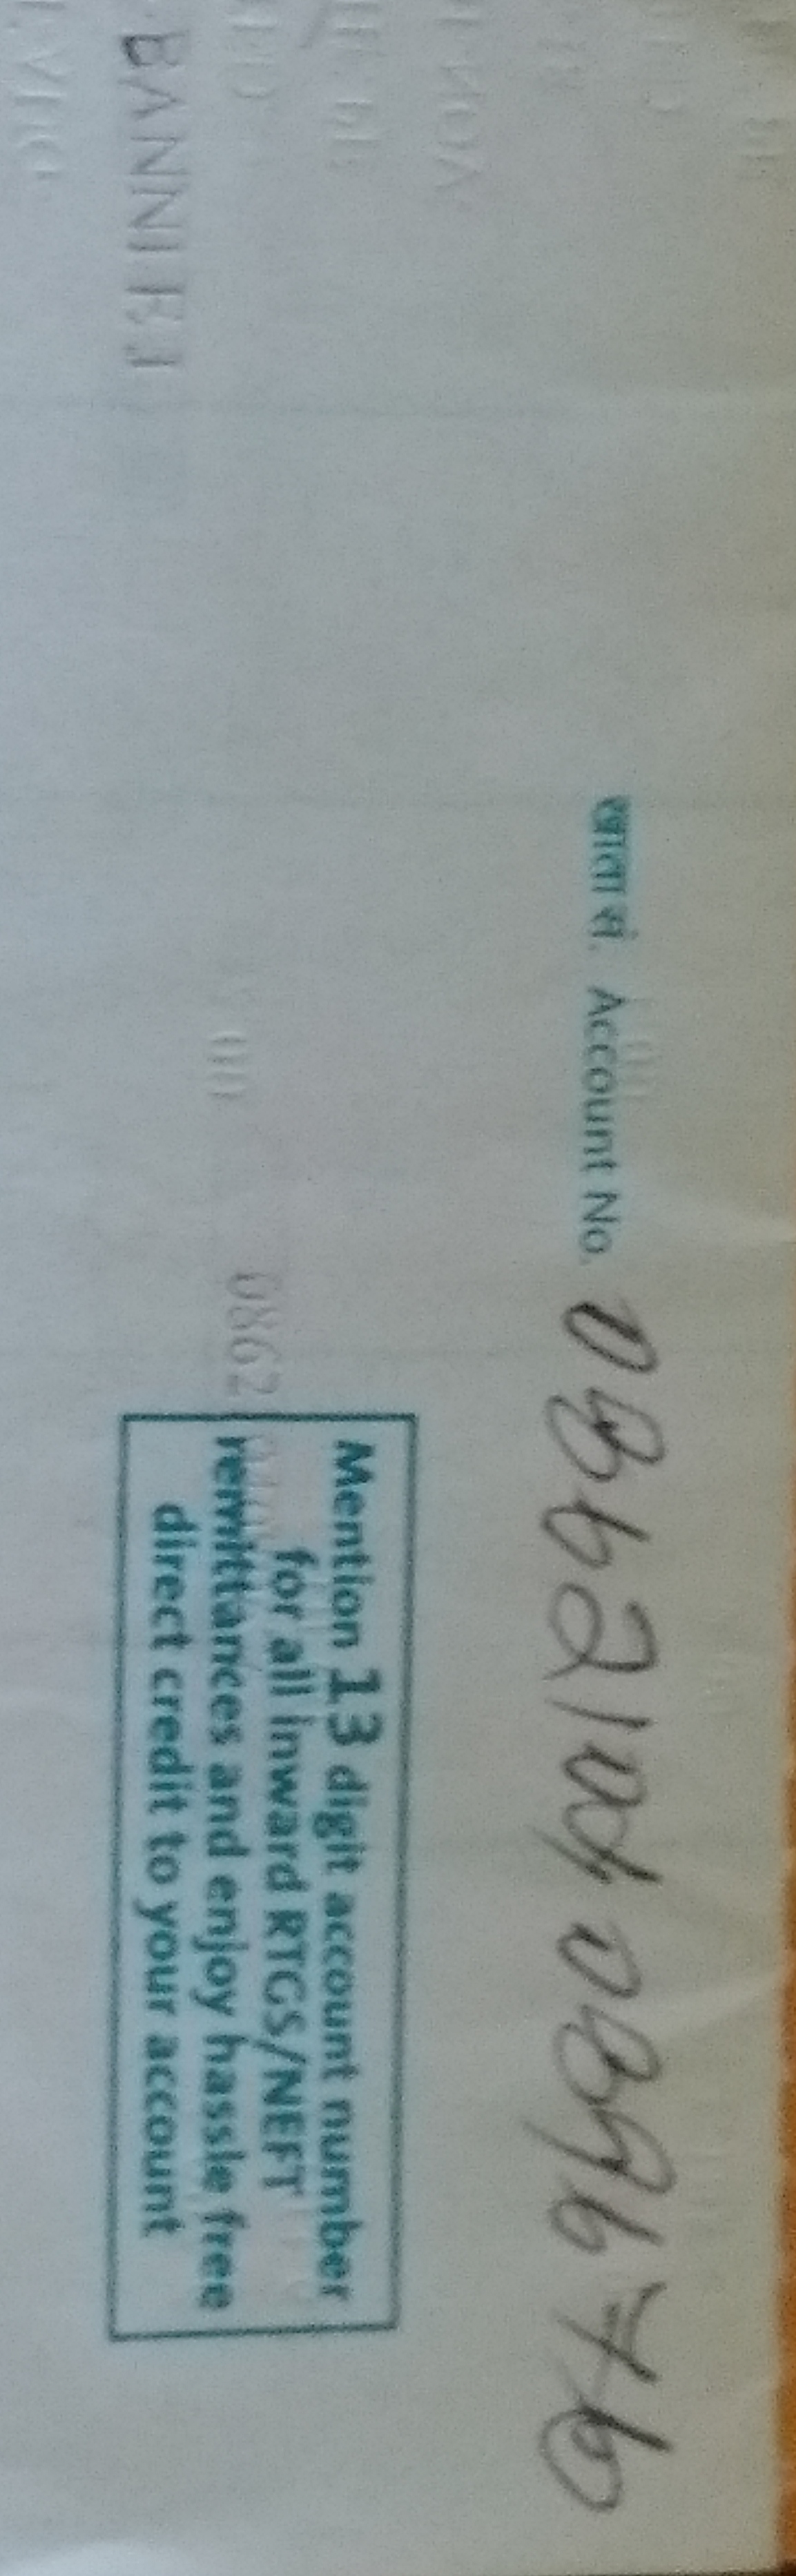 खाता सं. Account No. 0862104089676
Mention 13 digit account number
for all inward RTGS/NEFT
0862
remittances and enjoy hassle free
direct credit to your account